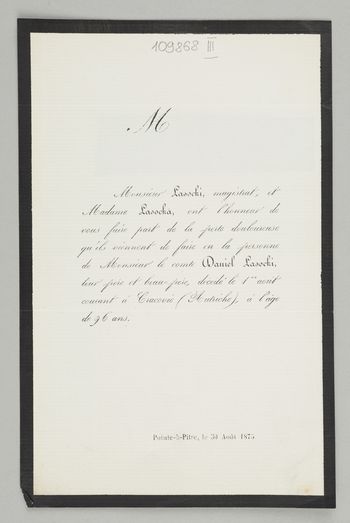 109868 III
M
Monsieur Lasscki, magistrat, et
Madame Lasscka, ont l'honneur de
vous faire part de la perte douloureuse
qu'ils viennent de faire en la personne
de Monsieur le comte Daniel Lasscki,
leur père et beau-père, décédé le 1er août
courant à Cracovie (Autriche), à l'âge
de 96 ans.
Pointe-à-Pitre, le 30 Août 1875